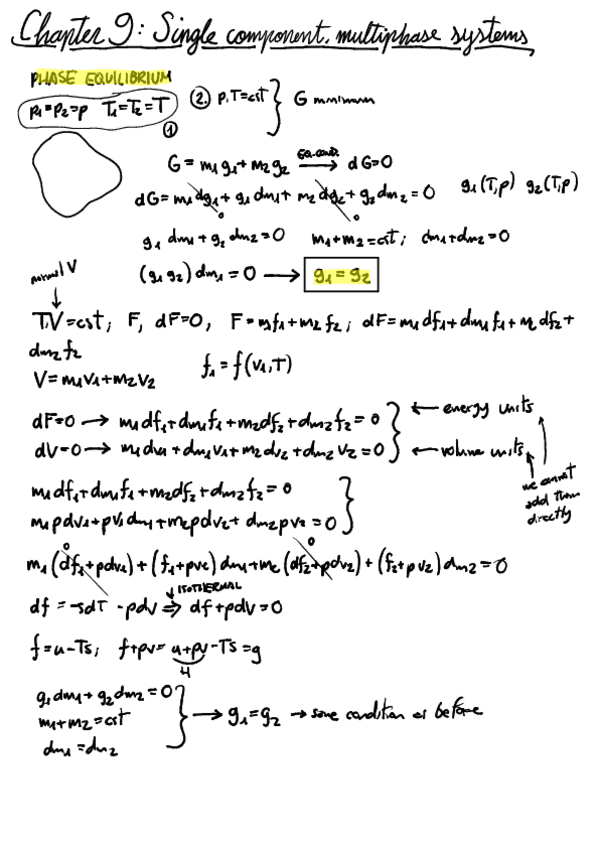 Chapter 9: Single component, multiphase systems
PHASE EQUILIBRIUM
p₁=p₂=p T₁=T₂=T ① ② p,T=cst } G minimum
G = m₁g₁+m₂g₂ →(EQ.COND.) dG=0
dG = m₁dg₁+g₁dm₁+m₂dg₂+g₂dm₂=0 g₁(T,p) g₂(T,p)
0 0
g₁ dm₁+g₂ dm₂=0 m₁+m₂=cst; dm₁+dm₂=0
(g₁ g₂)dm₁=0 → g₁=g₂
normal V
↓
T,V=cst; F, dF=0, F=m₁f₁+m₂f₂; dF=m₁df₁+dm₁f₁+m₂df₂+
dm₂f₂
V=m₁v₁+m₂v₂ f₁=f(v₁,T)
dF=0 → m₁df₁+dm₁f₁+m₂df₂+dm₂f₂=0 } ← energy units
dV=0 → m₁dv₁+dm₁v₁+m₂dv₂+dm₂v₂=0 ← volume units
we cannot
add them
directly
m₁df₁+dm₁f₁+m₂df₂+dm₂f₂=0 }
m₁pdv₁+pv₁dm₁+m₂pdv₂+dm₂pv₂=0
0 0
m₁(df₁+pdv₁)+(f₁+pv₁)dm₁+m₂(df₂+pdv₂)+(f₂+pv₂)dm₂=0
↓ ISOTHERMAL
df=-sdT-pdv ⇒ df+pdv=0
f=u-Ts; f+pv=u+pv-Ts=g
H
g₁dm₁+g₂dm₂=0
m₁+m₂=cst } → g₁=g₂ → same condition as before
dm₁=dm₂